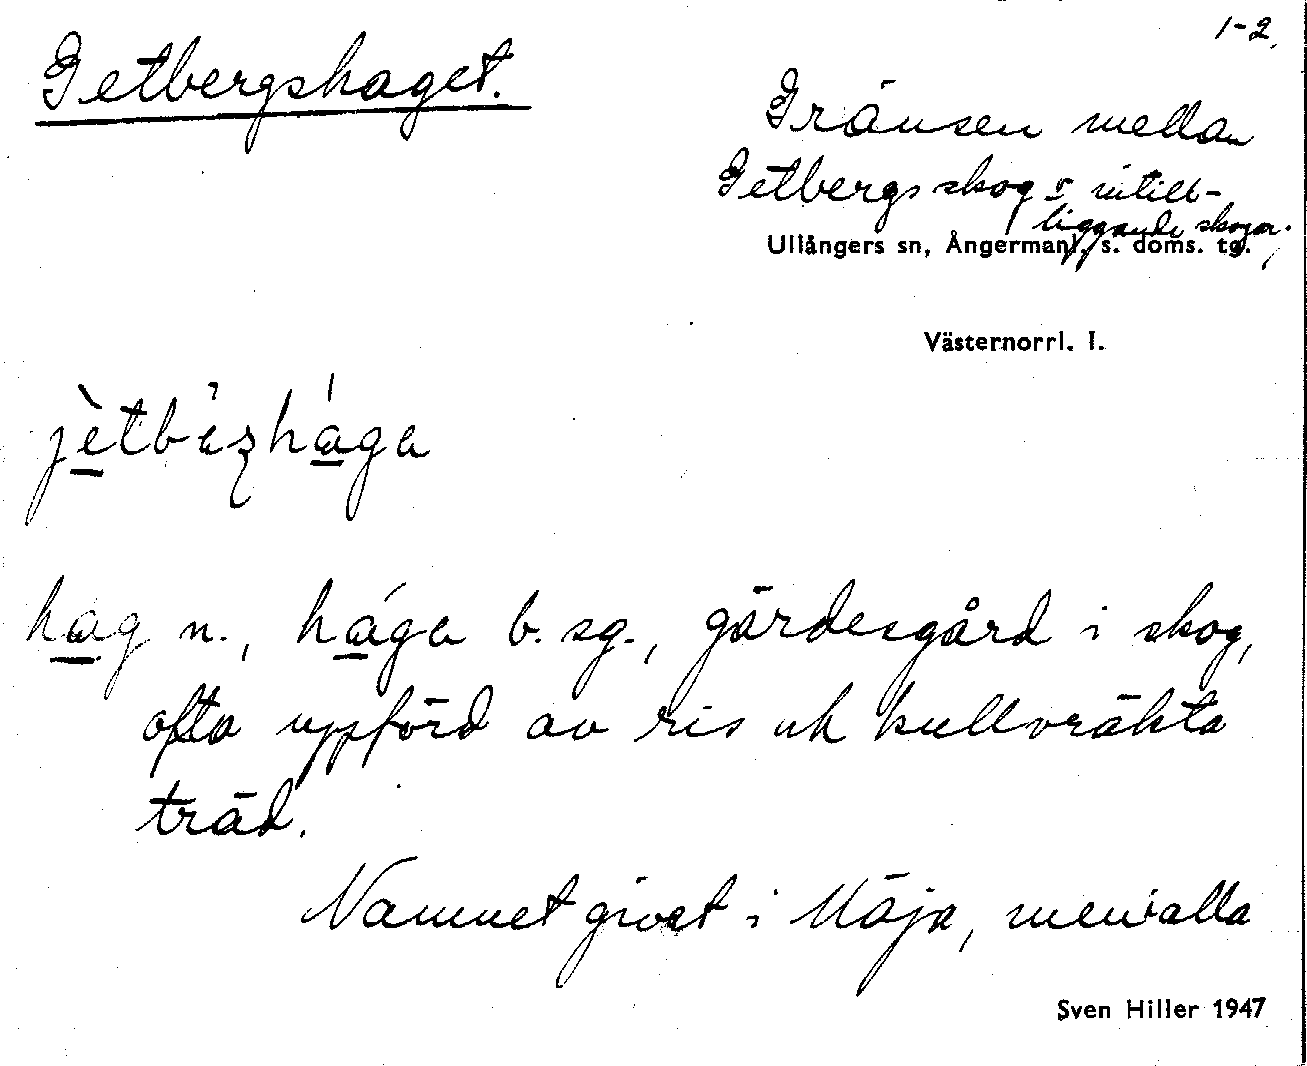 1-2.
Getbergshaget.
Gränsen mellan
Getbergs skog o. intill-
liggande skogar.
Ullångers sn, Ångermanl. s. doms. tg.
Västernorrl. l.
hag n., hága b. sg., gärdesgård i skog,
ofta uppförd av ris och kullvräkta
träd.
Namnet givet i Mäja, men i alla
Sven Hiller 1947